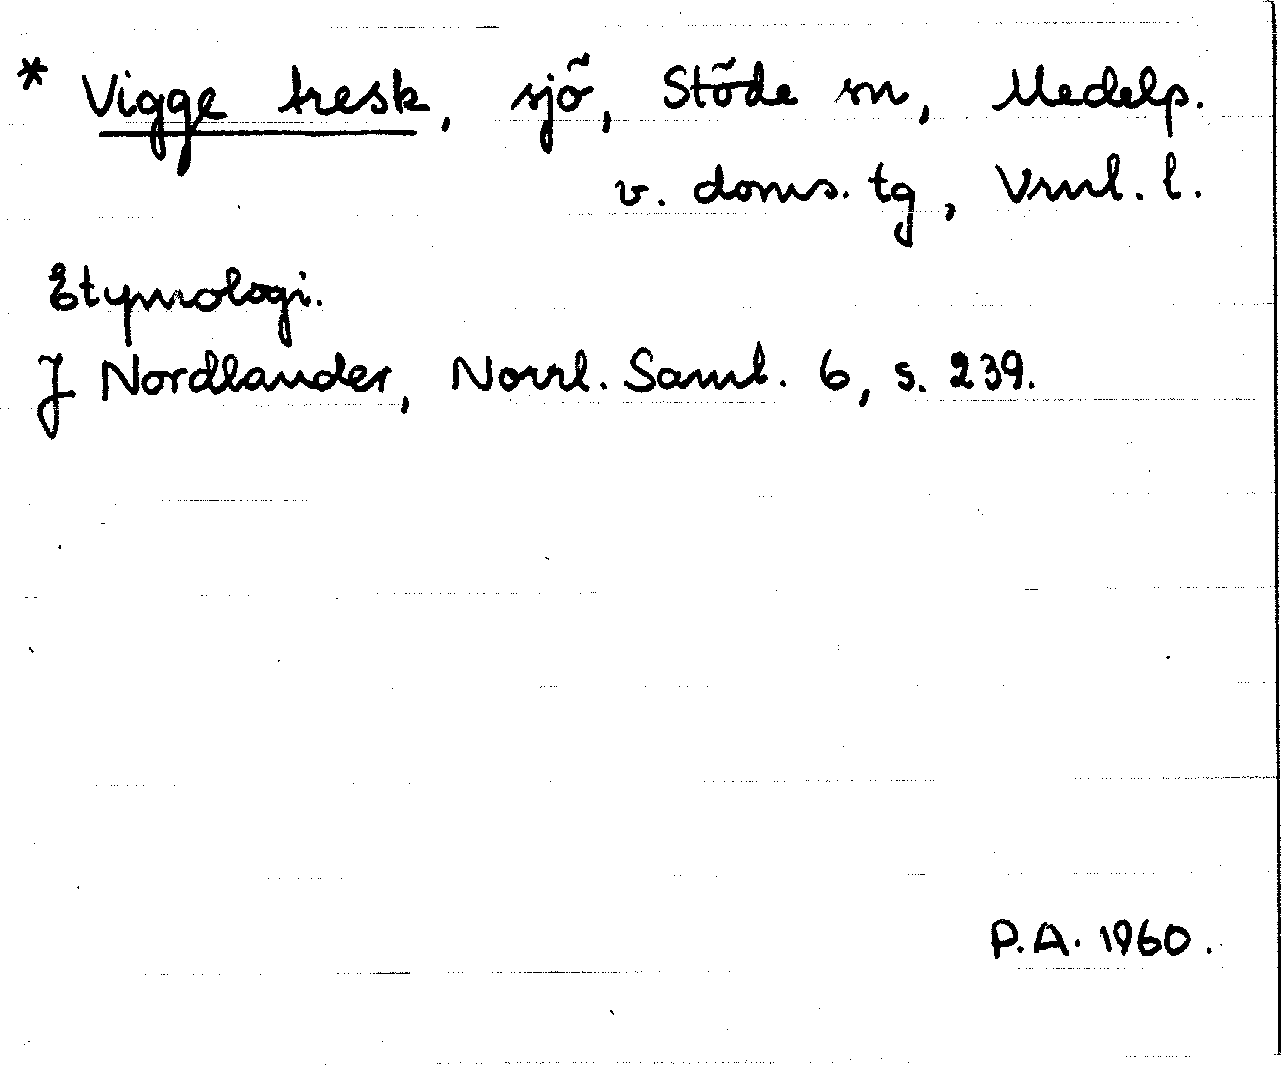 * Vigge tresk, sjö, Stöde sn, Medelp.
v. doms. tg, Vrnl. l.
Etymologi.
J Nordlander, Norrl. Saml. 6, s. 239.
P.A. 1960.